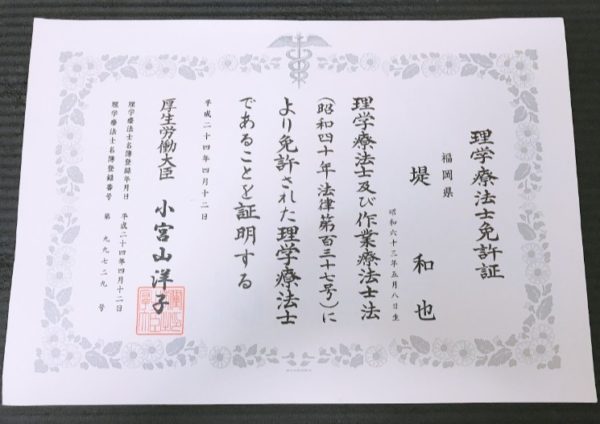 理学療法士免許証
福岡県
堤 和也
昭和六十三年五月八日生
理学療法士及び作業療法士法
(昭和四十年法律第百三十七号)に
より免許された理学療法士
であることを証明する
平成二十四年四月十二日
厚生労働大臣 小宮山洋子
理学療法士名簿登録年月日 平成二十四年四月十二日
理学療法士名簿登録番号 第 九九七二九 号